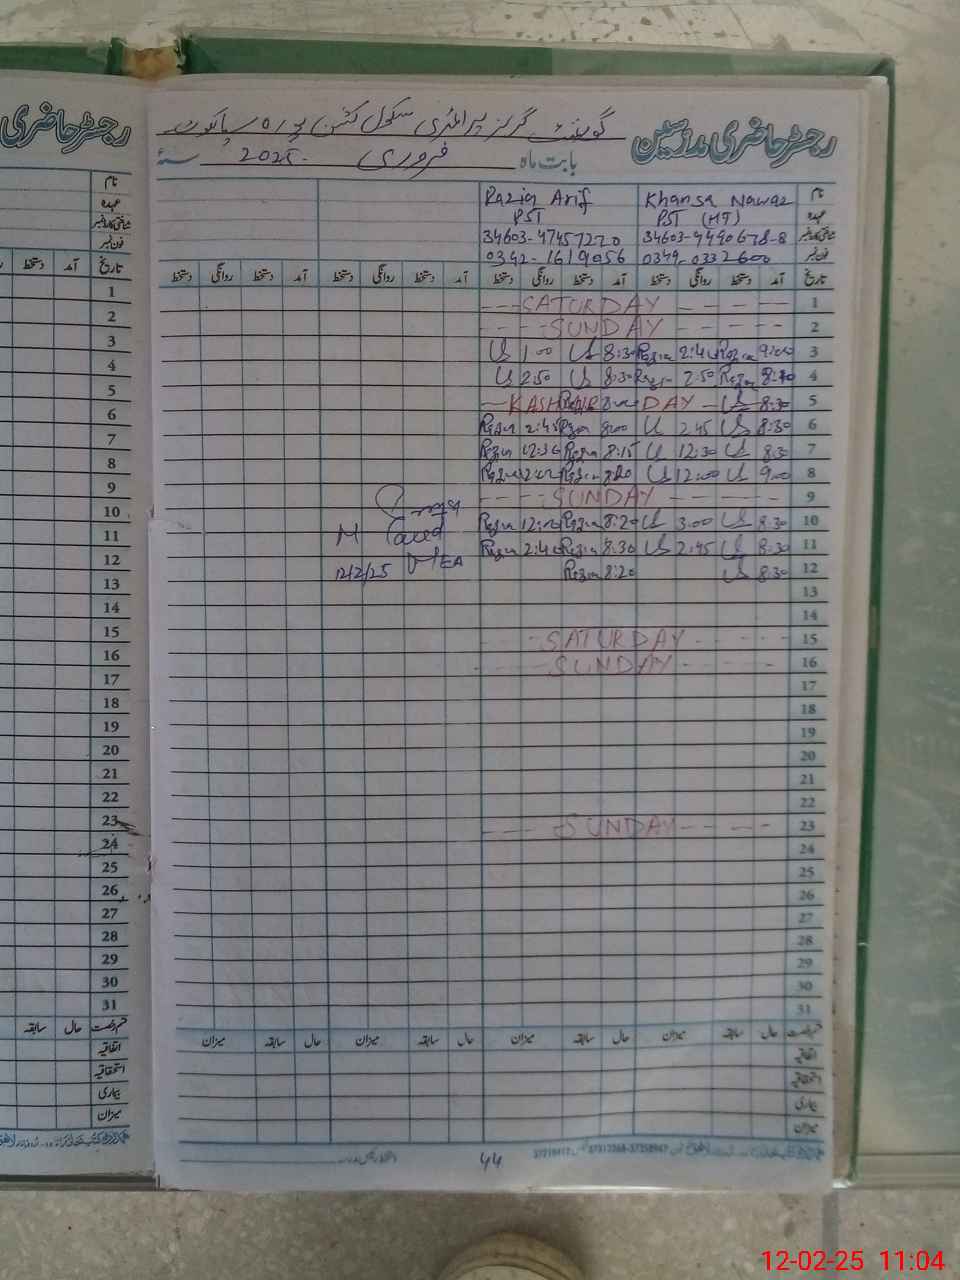 رجسٹر حاضری
رجسٹر حاضری مدرسین
گورنمنٹ گرلز پرائمری سکول کشن پورہ سیالکوٹ
بابت ماہ فروری 2025 سنہ
نام Khansa Nawaz Razia Arif
عہدہ PST (HT) PST
شناختی کارڈ نمبر 34603-4490678-8 34603-4745727-0
فون نمبر 0349-0332600 0342-1619056
تاریخ آمد دستخط روانگی دستخط آمد دستخط روانگی دستخط آمد دستخط روانگی دستخط آمد دستخط روانگی دستخط
1 SATURDAY
2 SUNDAY
3 9:00 2:40 8:30 1:00
4 2:50 8:30 2:50
5 8:30 KASHMIR DAY 8:00
6 8:30 2:45 8:00 2:45
7 8:30 12:30 8:15 12:30
8 9:00 12:00 8:20
9 SUNDAY
10 8:30 3:00 8:20
11 8:30 2:45 8:30 2:40
12 8:30 8:20
M Saeed
MEA
12/2/25
13
14
15 SATURDAY
16 SUNDAY
17
18
19
20
21
22
23 SUNDAY
24
25
26
27
28
29
30
31
قسم رخصت حال سابقہ میزان حال سابقہ میزان حال سابقہ میزان حال سابقہ میزان
اتفاقیہ
استحقاقیہ
بیماری
میزان
44
نام
عہدہ
شناختی کارڈ نمبر
فون نمبر
تاریخ آمد دستخط
1
2
3
4
5
6
7
8
9
10
11
12
13
14
15
16
17
18
19
20
21
22
23
24
25
26
27
28
29
30
31
قسم رخصت حال سابقہ
اتفاقیہ
استحقاقیہ
بیماری
میزان
12-02-25 11:04